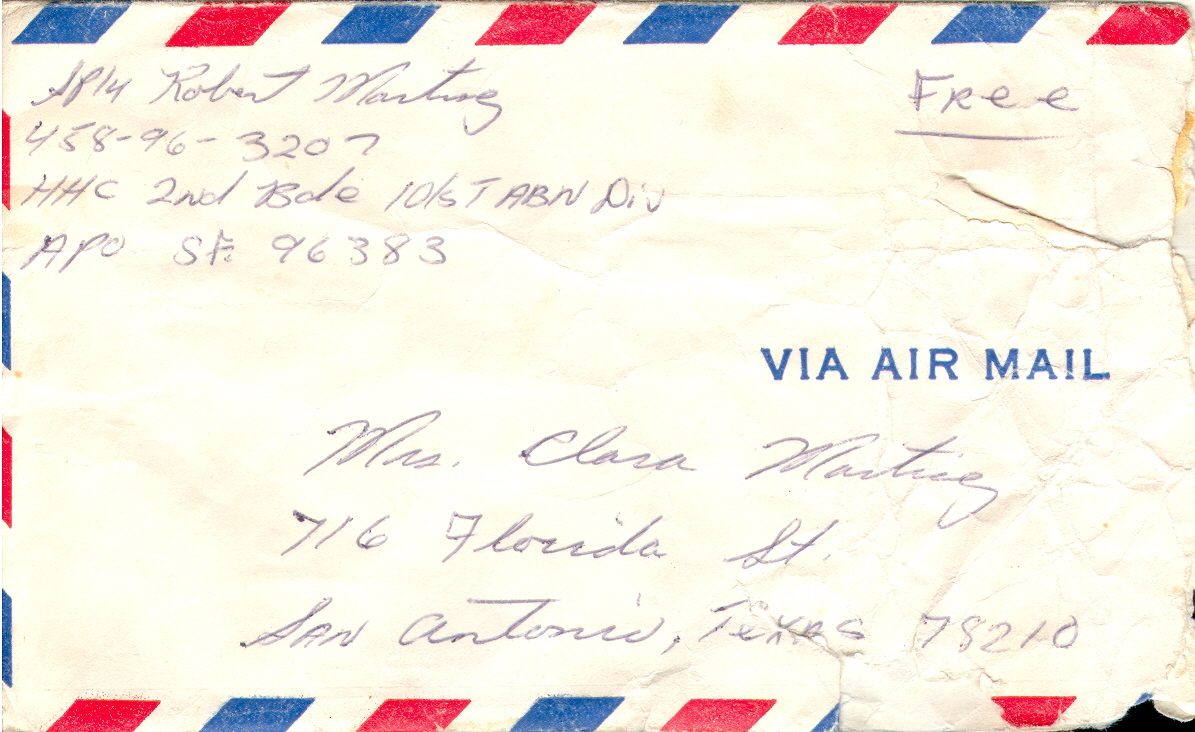 SP/4 Robert Martinez
458-96-3207
HHC 2nd Bde 101st ABN Div
APO SF 96383
Free
VIA AIR MAIL
Mrs. Clara Martinez
716 Florida St.
San Antonio, Texas 78210